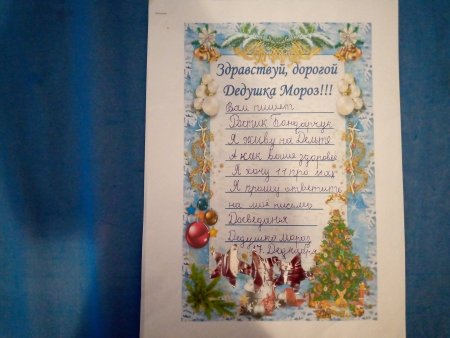 Здравствуй, дорогой
Дедушка Мороз!!!
Вам пишет
Ростик Бондарчук
Я живу на Дельте
А как ваше здоровье
Я хочу 11 про мах
Я прошу ответите
на мое письмо
Досведанья
Дедушка Мороз